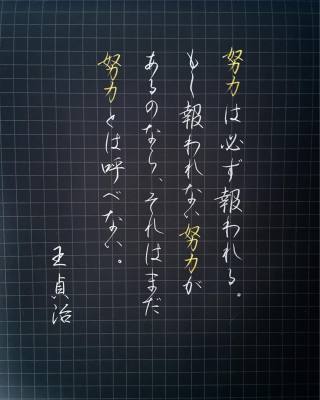 努力は必ず報われる。
もし報われない努力が
あるのなら、それはまだ
努力とは呼べない。
王貞治